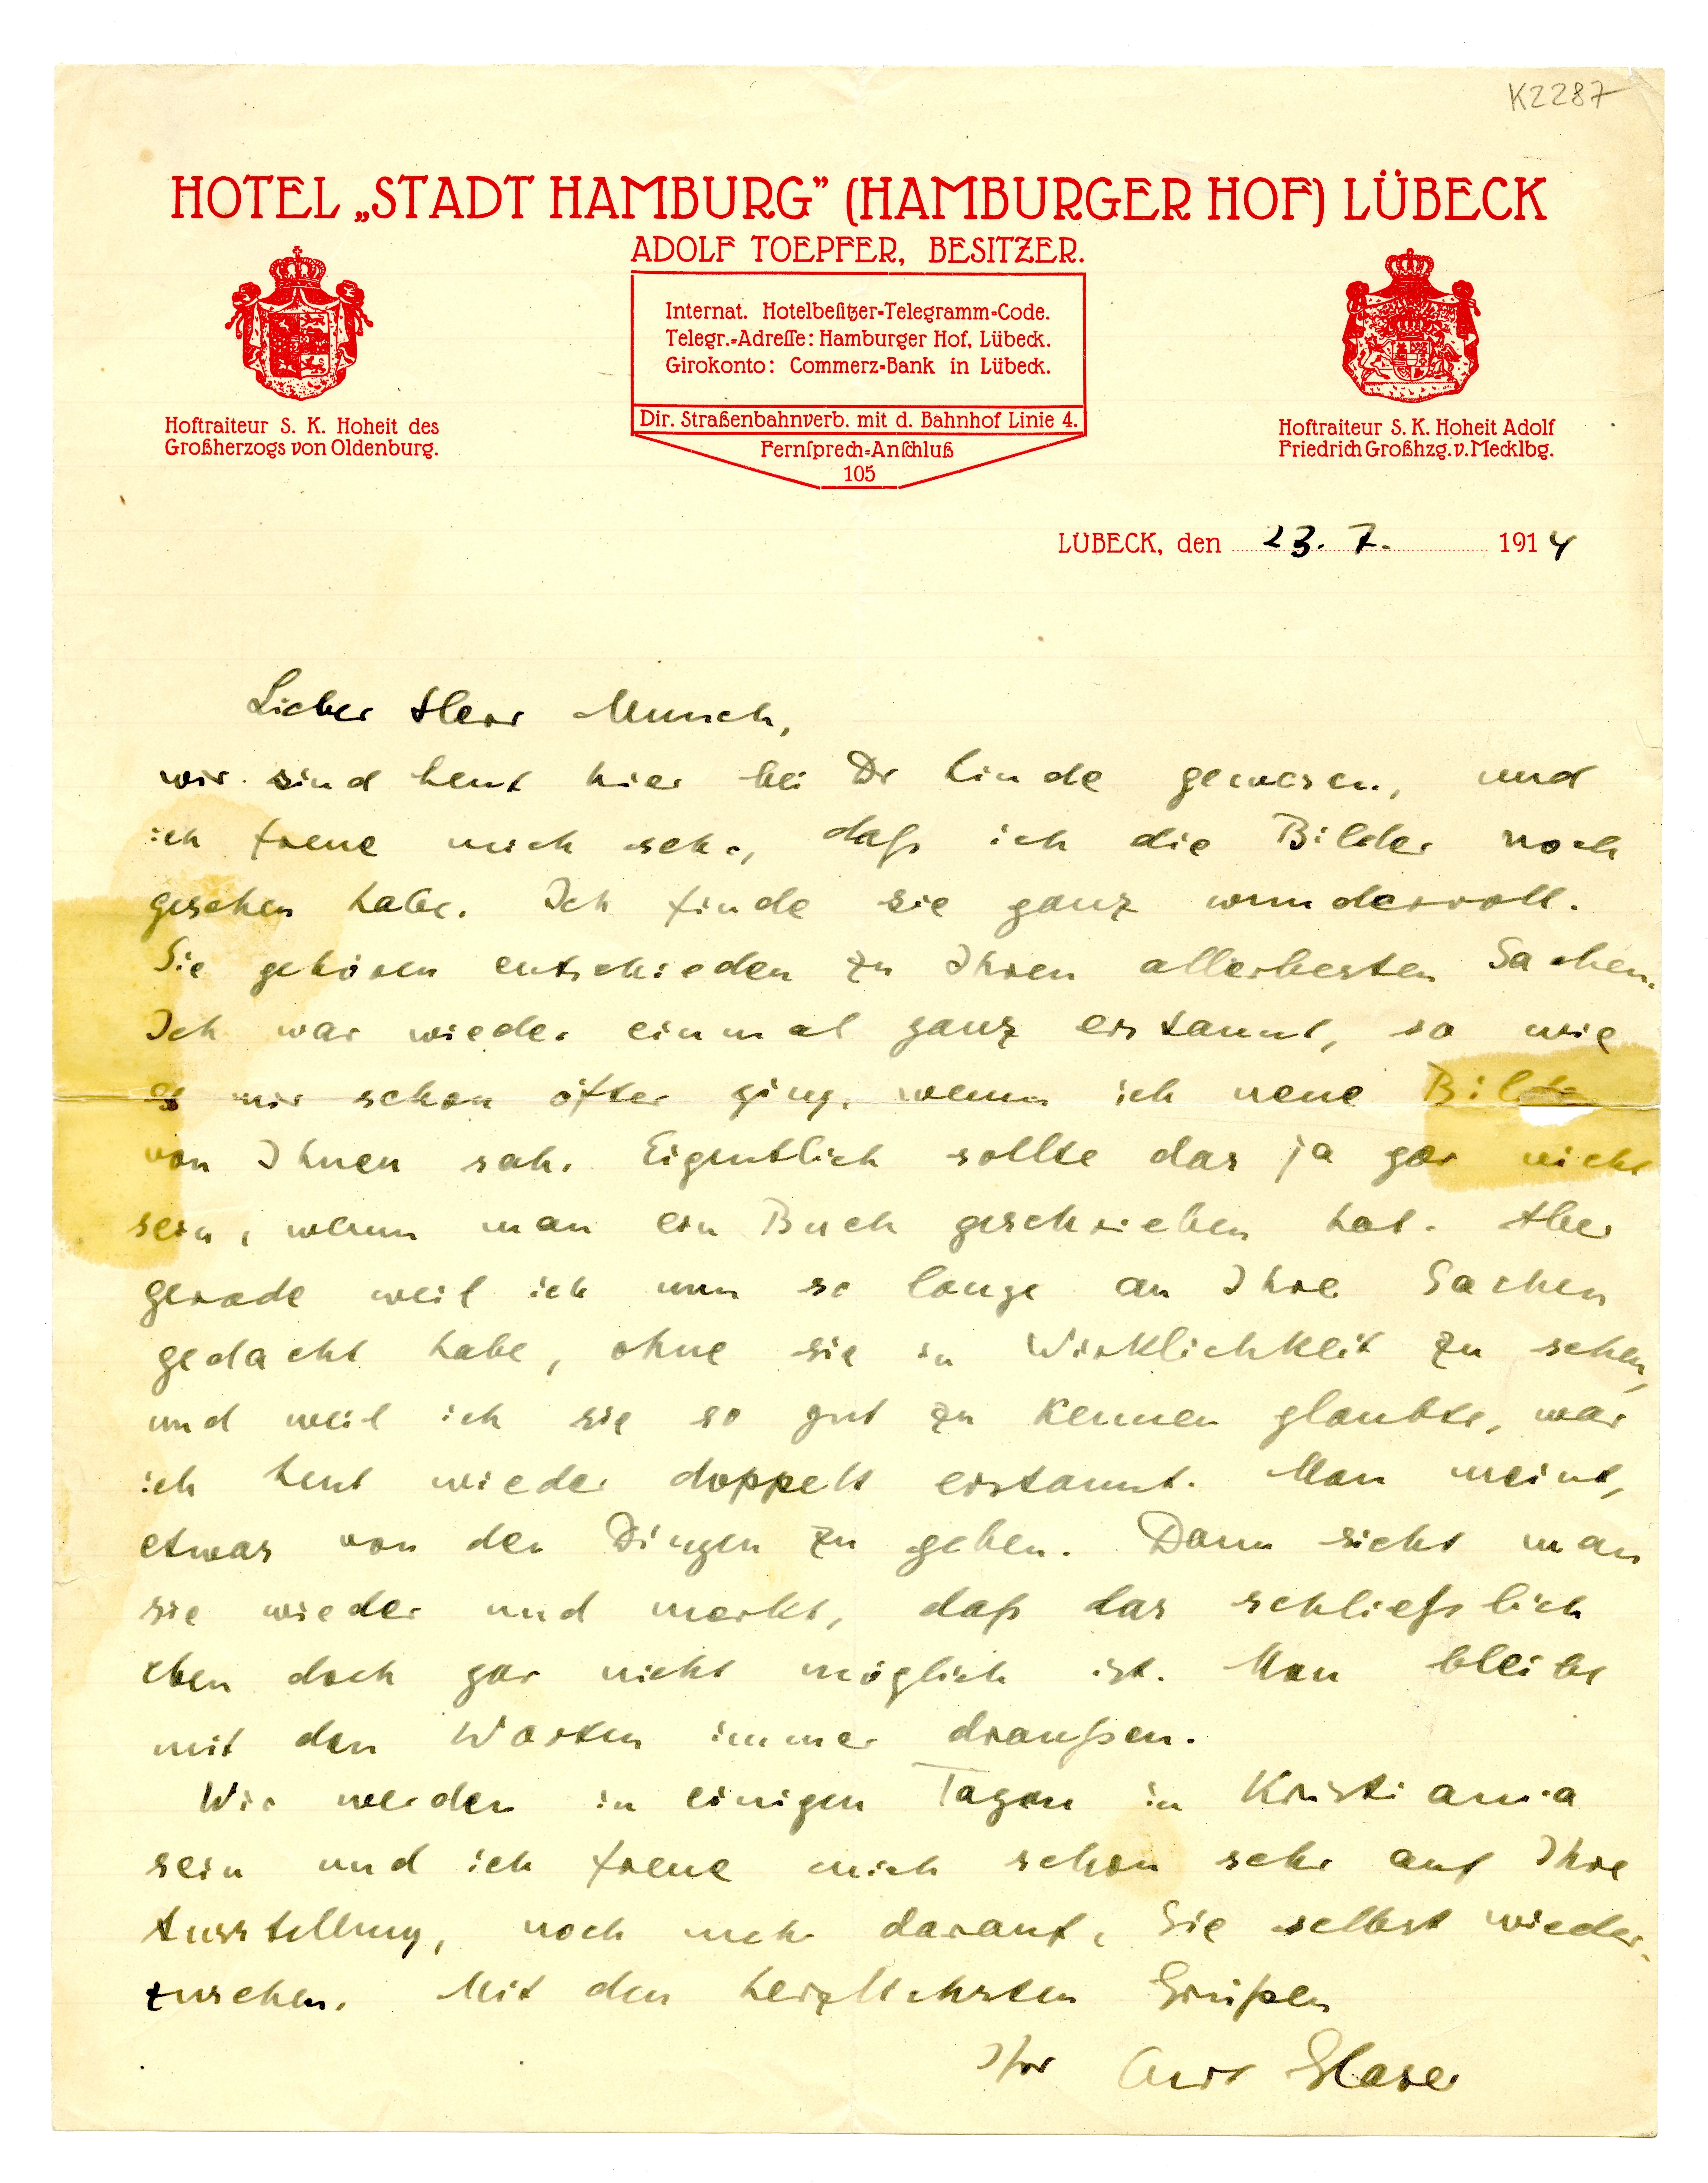 K2287
HOTEL „STADT HAMBURG” (HAMBURGER HOF) LÜBECK
ADOLF TOEPFER, BESITZER.
Internat. Hotelbeſitzer-Telegramm-Code.
Telegr.-Adreſſe: Hamburger Hof, Lübeck.
Girokonto: Commerz-Bank in Lübeck.
Dir. Straßenbahnverb. mit d. Bahnhof Linie 4.
Fernſprech-Anſchluß
105
Hoftraiteur S. K. Hoheit des
Großherzogs von Oldenburg.
Hoftraiteur S. K. Hoheit Adolf
Friedrich Großhzg. v. Mecklbg.
LÜBECK, den 23. 7. 1914
Lieber Herr Munch,
wir sind heut hier bei Dr Linde gewesen, und
ich freue mich sehr, daß ich die Bilder noch
gesehen habe. Ich finde sie ganz wundervoll.
Sie gehören entschieden zu Ihren allerbesten Sachen.
Ich war wieder einmal ganz erstaunt, so wie
es mir schon öfter ging, wenn ich neue Bilder
von Ihnen sah. Eigentlich sollte das ja gar nicht
sein, wenn man ein Buch geschrieben hat. Aber
gerade weil ich nun so lange an Ihre Sachen
gedacht habe, ohne sie in Wirklichkeit zu sehen,
und weil ich sie so gut zu kennen glaubte, war
ich heut wieder doppelt erstaunt. Man meint,
etwas von den Dingen zu geben. Dann sieht man
sie wieder und merkt, daß das schließlich
eben doch gar nicht möglich ist. Man bleibt
mit den Worten immer draußen.
Wir werden in einigen Tagen in Kristiania
sein und ich freue mich schon sehr auf Ihre
Ausstellung, noch mehr darauf, Sie selbst wieder-
zusehen. Mit den herzlichsten Grüßen
Ihr Curt Glaser